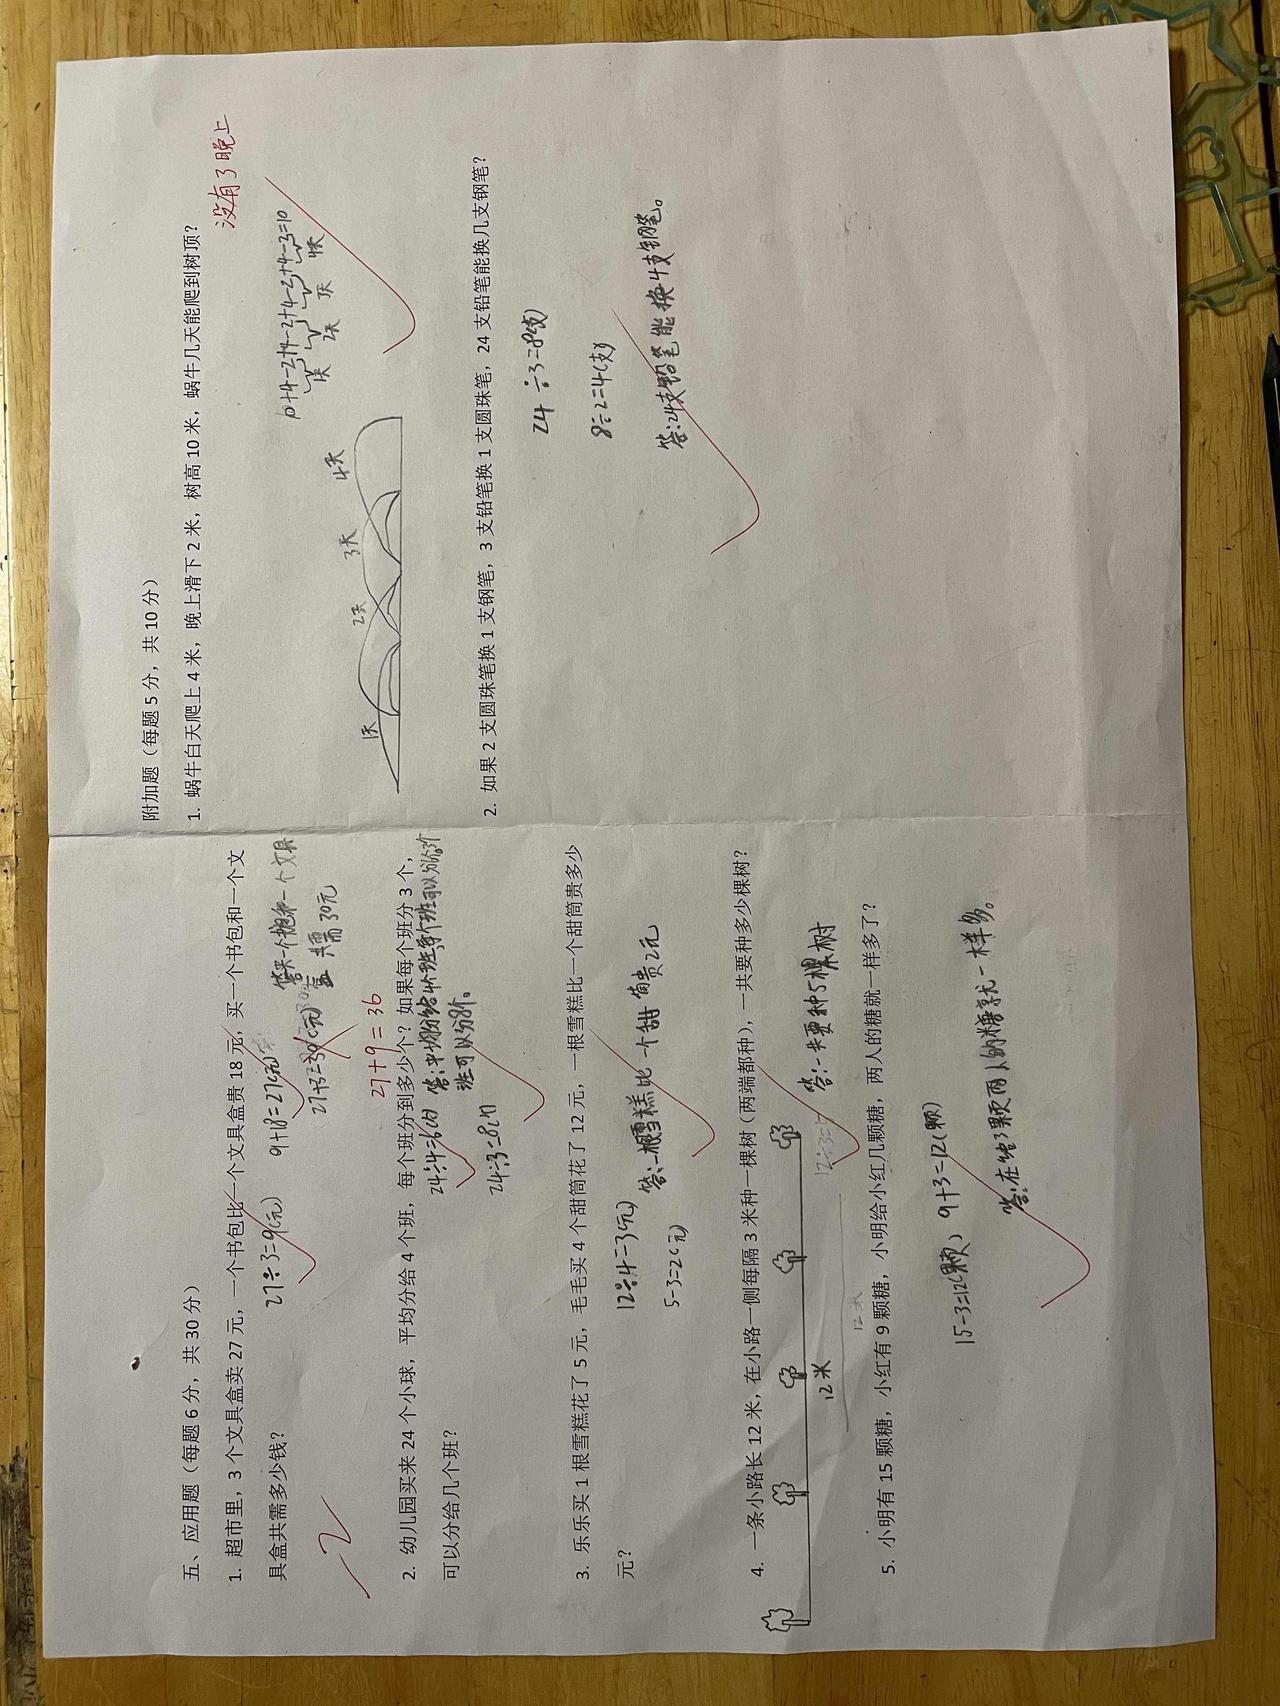 五、应用题（每题 6 分，共 30 分）
1. 超市里，3 个文具盒卖 27 元，一个书包比一个文具盒贵 18 元，买一个书包和一个文
具盒共需多少钱？
27÷3=9(元)
9+18=27(元)
27+3=30(元)
共需30元
27+9=36
-2
2. 幼儿园买来 24 个小球，平均分给 4 个班，每个班分到多少个？如果每个班分 3 个，
可以分给几个班？
24÷4=6(个)
24÷3=8(个)
3. 乐乐买 1 根雪糕花了 5 元，毛毛买 4 个甜筒花了 12 元，一根雪糕比一个甜筒贵多少
元？
12÷4=3(元)
5-3=2(元)
答:一根雪糕比一个甜筒贵2元
4. 一条小路长 12 米，在小路一侧每隔 3 米种一棵树（两端都种），一共要种多少棵树？
12米
12米
答:一共要种5棵树
5. 小明有 15 颗糖，小红有 9 颗糖，小明给小红几颗糖，两人的糖就一样多了？
15-3=12(颗) 9+3=12(颗)
答:在给3颗两人的糖就一样多。
附加题（每题 5 分，共 10 分）
1. 蜗牛白天爬上 4 米，晚上滑下 2 米，树高 10 米，蜗牛几天能爬到树顶？
没有了晚上
1天 2天 3天 4天
1天 2天 3天 4天
2. 如果 2 支圆珠笔换 1 支钢笔，3 支铅笔换 1 支圆珠笔，24 支铅笔能换几支钢笔？
24÷3=8(支)
8÷2=4(支)
答:24支铅笔能换4支钢笔。